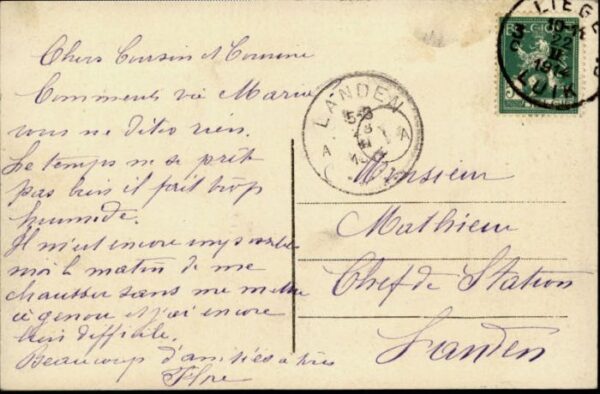 Chers Cousin et Cousine
Comments va Maria
vous ne dites rien.
Le temps ne se prêt
pas bien il fait trop
humide.
Il m'est encore impossible
moi le matin de me
chausser sans me mettre
à genou et j'ai encore
bien difficile.
Beaucoup d'amitiés à tous
Flore
LIEGE
10-11
1912
LUIK
BELGIE
LANDEN
Monsieur
Mathieu
Chef de Station
Landen